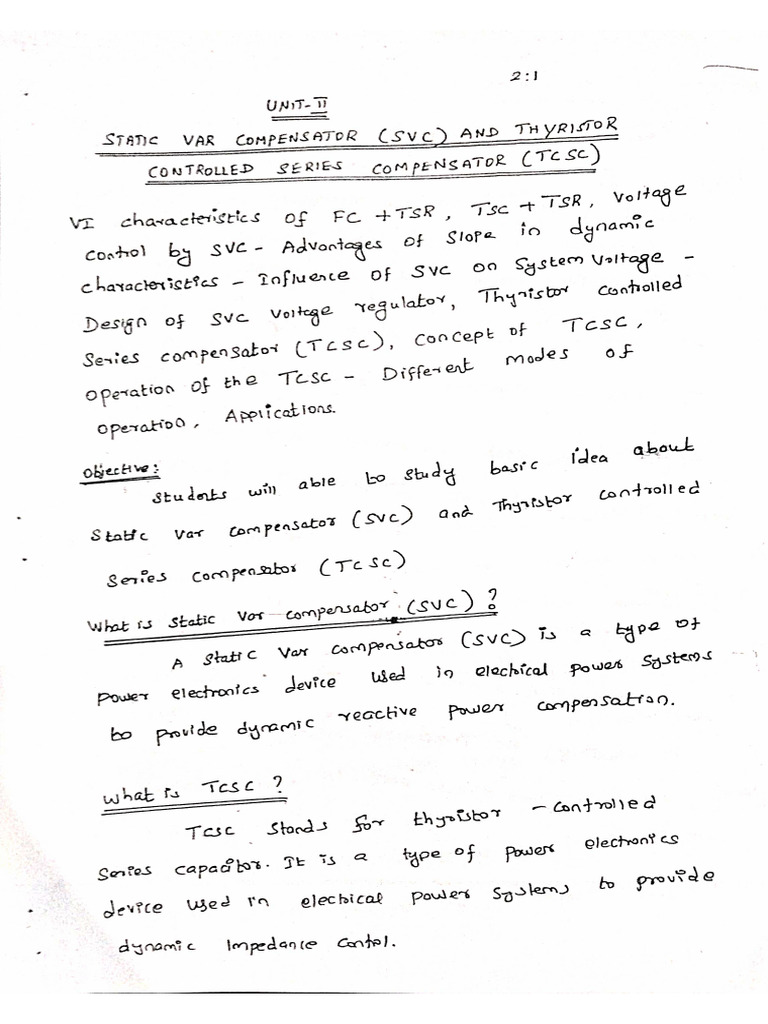 2:1
UNIT-II
STATIC VAR COMPENSATOR (SVC) AND THYRISTOR
CONTROLLED SERIES COMPENSATOR (TCSC)
VI characteristics of FC +TSR, TSC +TSR, Voltage
control by SVC - Advantages of Slope in dynamic
characteristics - Influence of SVC on System Voltage -
Design of SVC Voltage regulator, Thyristor controlled
Series compensator (TCSC), Concept of TCSC,
operation of the TCSC - Different modes of
operation, Applications.
Objective:
Students will able to study basic idea about
Static Var compensator (SVC) and Thyristor controlled
Series compensator (TCSC)
What is Static Var compensator (SVC)?
A Static Var compensator (SVC) is a type of
Power electronics device used in electrical power systems
to provide dynamic reactive power compensation.
What is TCSC?
TCSC stands for thyristor - controlled
Series capacitor. It is a type of power electronics
device used in electrical power systems to provide
dynamic Impedance Contol.